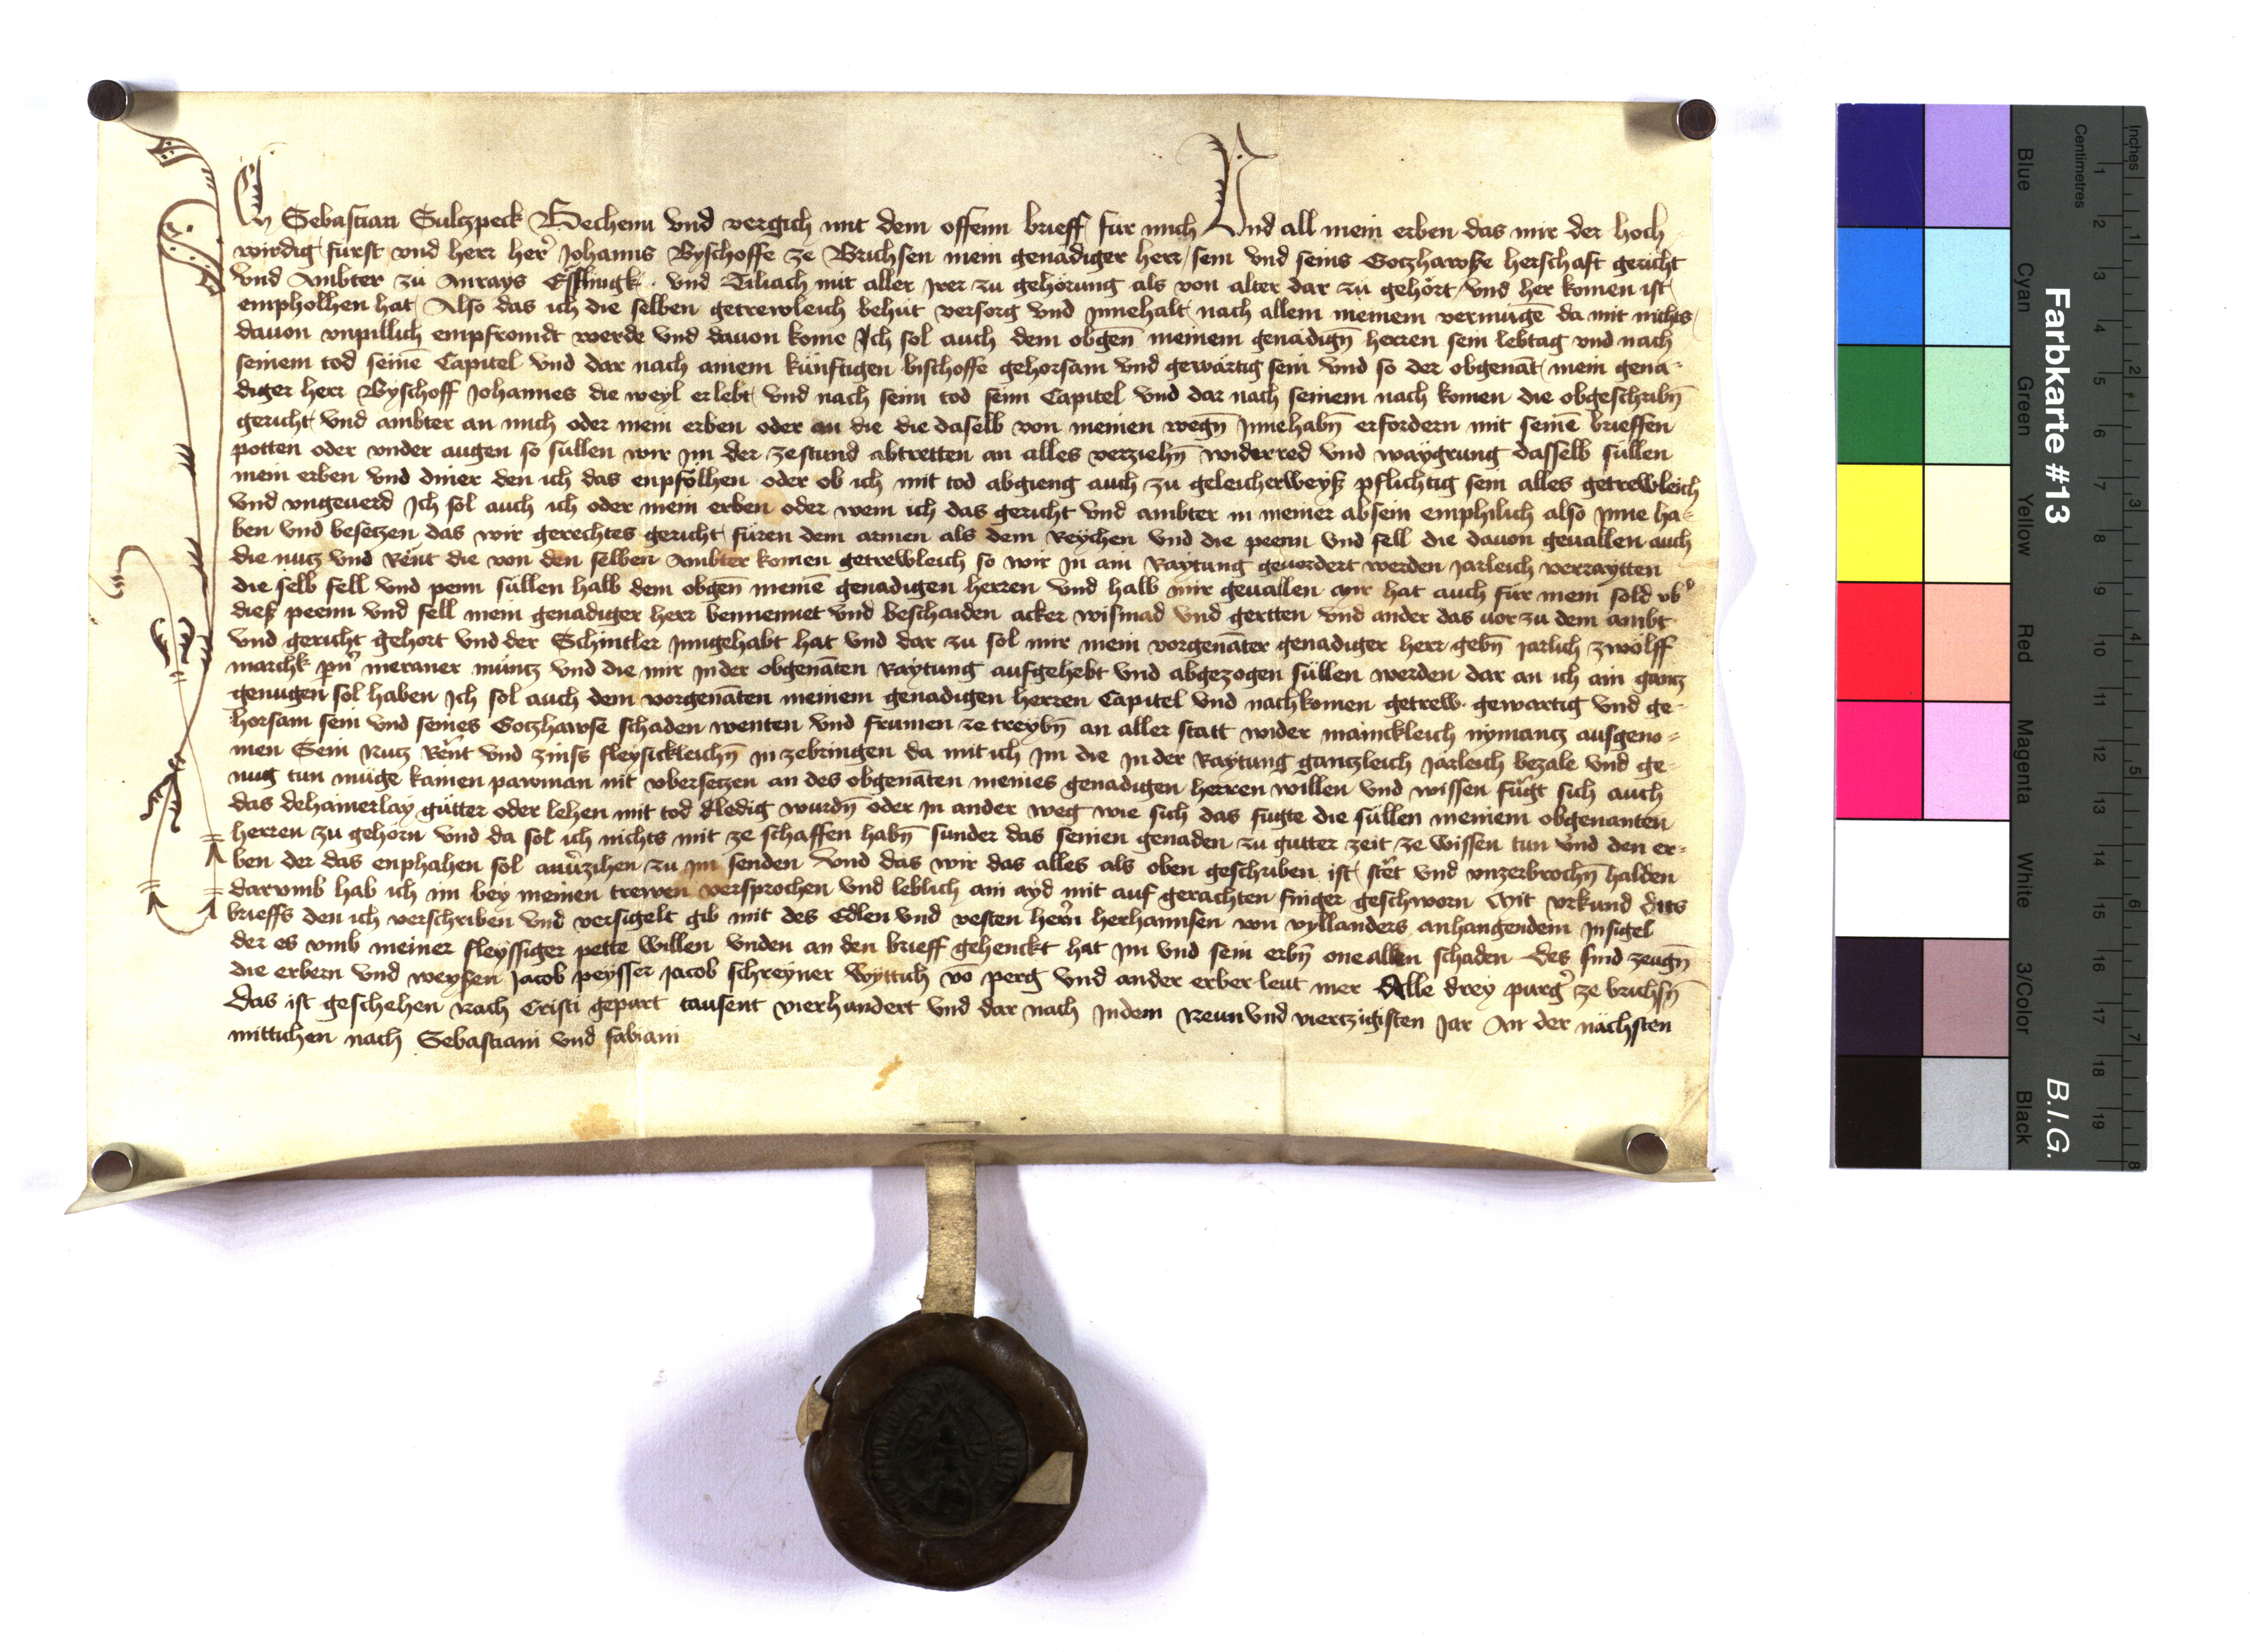 Ich Sebastian Sultzpeck Bechenn vnd vergich mit dem offenn brieff fur mich Vnd all mein erben das mir der hoch
wirdig furst vnd herr her Johanns Byschoffe ze Brichsen mein genädiger herr sein vnd seins Gotzhawse herschaft gericht
vnd Ambter zu Anrays vnd Tiliach mit aller irer zu gehörung als von alter dar zu gehört vnd her komen ist
empholhen hat Also das ich die selben getrewleich behüt versorg vnd Innehalt nach allem meinem vermügē da mit nichts
dauon vnpillich empfromdt werde vnd dauon kome Ich sol auch dem obgen̄ meinem genädign̄ herren sein lebtag vnd nach
seinem tod seinē Capitel vnd dar nach ainem künftigen bischoffe gehorsam vnd gewärtig sein vnd so der obgenāt mein gena-
diger herr Byschoff Johannes die weyl er lebt vnd nach seim tod seim Capitel vnd dar nach seinem nach komen die obgeschribn̄
gericht vnd ambter an mich oder mein erben oder an die die daselb von meinen wegn̄ Innehabn̄ erfordern mit seinē brieffen
potten oder vnder augen so süllen wir im der zestund abtretten an alles verziehn̄ widerred vnd waygrung dasselb süllen
mein erben vnd diner den ich das enpfölhen oder ob ich mit tod abgieng auch zu geleicherweyß pflichtig sein alles getrewleich
vnd vngeuerd Ich sol auch ich oder mein erben oder wem ich das gericht vnd ambter in meiner absein emphilich also Inne ha-
ben vnd besetzen das wir gerechtes gericht füren dem armen als dem Reychen vnd die peenn vnd fell die dauon geuallen auch
die nutz vnd Rënt die von den selben Ambter komen getrewleich so wir in ain Raytung geuordert werden Jarleich verraytten
die selb fell vnd penn süllen halb dem obgen̄ meinē genadigen herren vnd halb mir geuallen mir hat auch für mein sold vbr
dieß peenn vnd fell mein genadiger herr bennennet vnd beschaiden acker wismad vnd gertten vnd ander das uor zu dem ambt
vnd gericht gehort vnd der Schintler inngehabt hat vnd dar zu sol mir mein vorgenāter genadiger herr gebn̄ jarlich zwölff
marchk meraner müntz vnd die mir Inder obgenāten Raytung aufgehebt vnd abgezogen süllen werden dar an ich ain gantz
genugen sol haben Ich sol auch dem vorgenāten meinem genadigen herren Capitel vnd nachkomen getrew gewartig vnd ge-
horsam sein vnd seines Gotzhawse schaden wenten vnd frumen ze treybn̄ an aller statt wider mainckleich nymantz ausgeno-
men Sein Nutz Rënt vnd zinss fleysickleichn̄ in zebringen da mit ich Im die Inder Raytung gantzleich Jarleich bezale vnd ge-
nug tun müge kainen pawman nit vbersetzen an des obgenāten meines genadigen herren willen vnd wissen fügt sich auch
das dehainerlay gütter oder lehen mit tod ledig wurdn̄ oder In ander weg wie sich das fügte die süllen meinem obgenanten
herren zu gehörn vnd da sol ich nichts mit ze schaffen habn̄ sunder das seinen genaden zu gutter zeit ze wissen tun vnd den er-
ben der das enphahen sol zu im senden Vnd das wir das alles als oben geschriben ist stët vnd vnzerbrochn̄ halden
darvmb hab ich im bey meinen trewen versprochen vnd leblich ain ayd mit auf gerachten finger geschworn Mit vrkund dits
brieffs den ich verschriben vnd versigelt gib mit des Edlen vnd vesten hern herhannsen von vyllanders anhangendem Insigel
der es vmb meiner fleyssiger pette willen vnden an den brieff gehenckt hat im vnd sein erbn̄ one allen schaden Des sind zeugn̄
die erbern vnd weysen Jacob peysser Jacob schreyner Wyttich vo perg vnd ander erber leut mer Alle drey purg̉ ze brichsn̄
Das ist geschehen Nach Cristi gepurt tausent vierhundert vnd dar nach Indem Neunvndviertzigisten Jar An der nächsten
mittichen nach Sebastiani vnd fabiani
Farbkarte #13
B.I.G.
Inches
Centimetres
Blue
Cyan
Green
Yellow
Red
Magenta
White
3/Color
Black
1 2 3 4 5 6 7 8 9 10 11 12 13 14 15 16 17 18 19
1 2 3 4 5 6 7 8